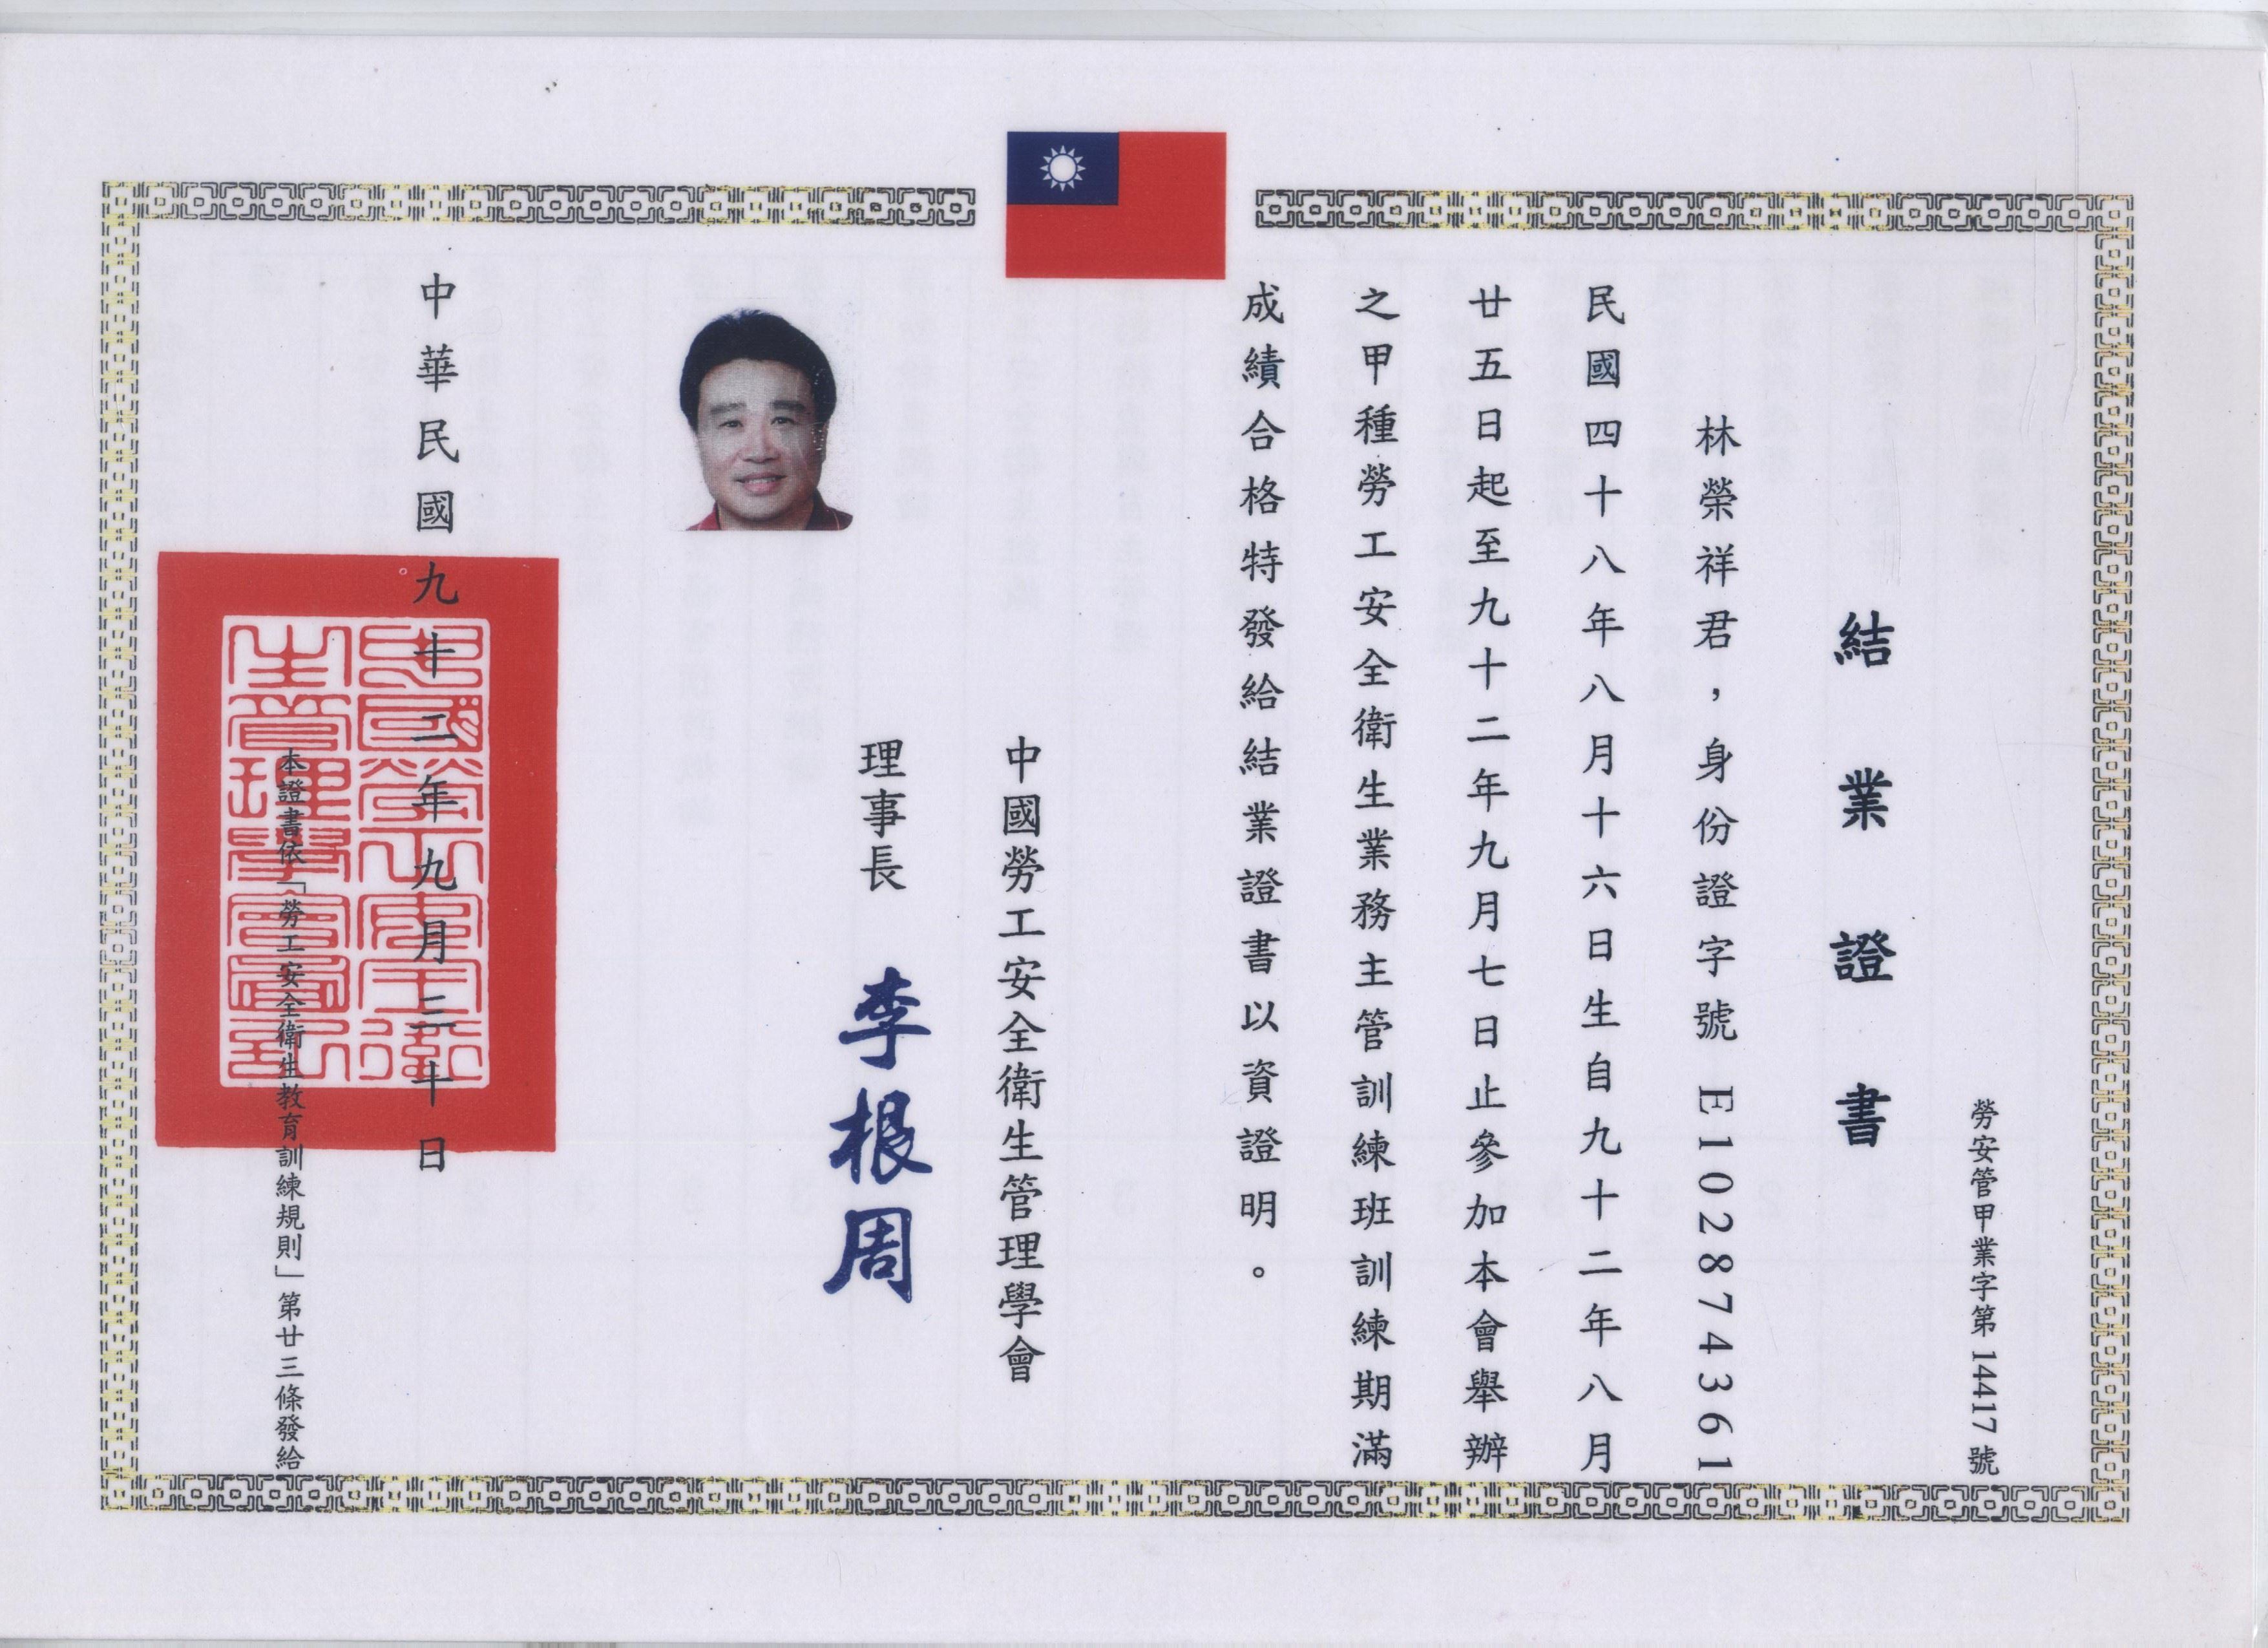 勞安管甲業字第14417號
結業證書
林榮祥君，身份證字號 E102874361
民國四十八年八月十六日生自九十二年八月
廿五日起至九十二年九月七日止參加本會舉辦
之甲種勞工安全衛生業務主管訓練班訓練期滿
成績合格特發給結業證書以資證明。
中國勞工安全衛生管理學會
理事長 李根周
中華民國九十二年九月三十日
本證書依「勞工安全衛生教育訓練規則」第廿三條發給